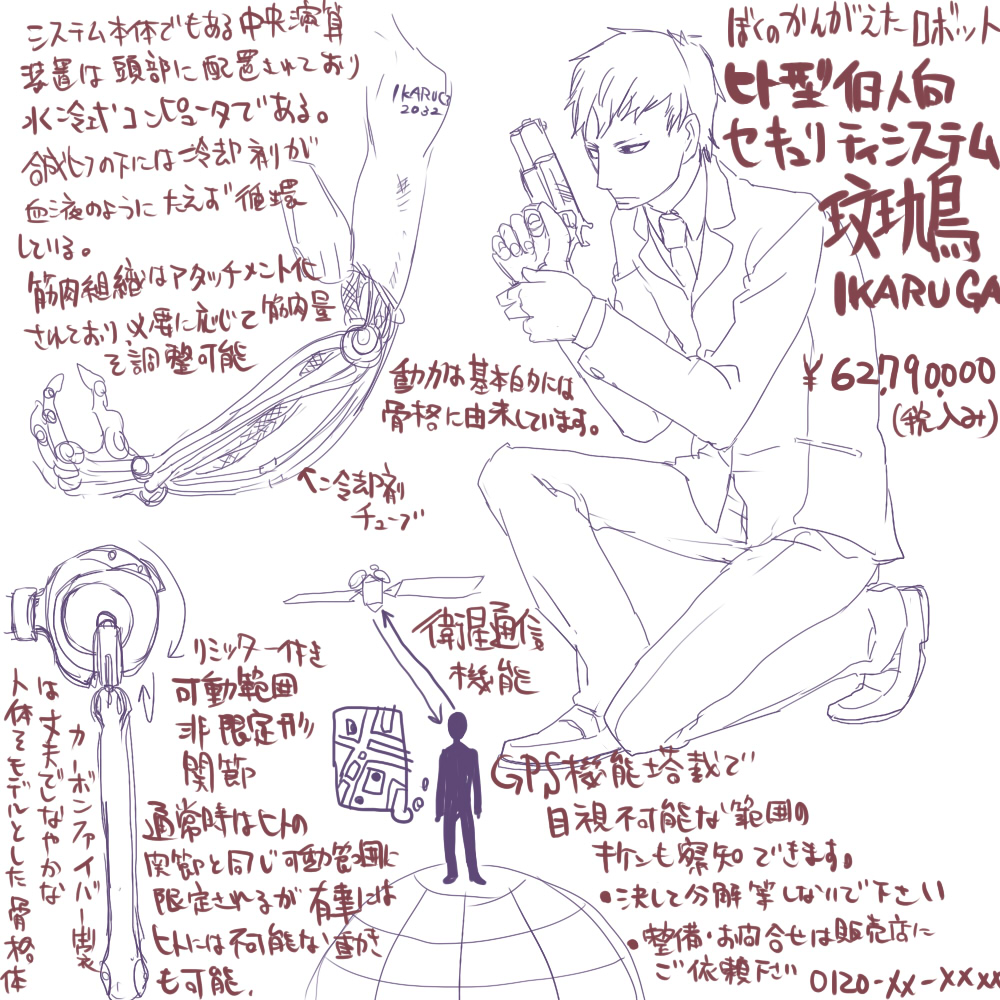 ぼくのかんがえたロボット
ヒト型個人向
セキュリティシステム
斑鳩
IKARUGA
¥62,790,000
(税込み)
システム本体でもある中央演算
装置は頭部に配置されており
水冷式コンピュータである。
の下には冷却剤が
血液のようにたえず循環
している。
筋肉組織はアタッチメント化
されており、必要に応じて筋肉量
を調整可能
IKARUGA
2032
動力は基本的には
骨格に由来しています。
←冷却剤
チューブ
リミッター付き
可動範囲
非限定形
関節
通常時はヒトの
関節と同じ可動範囲に
限定されるが有事には
ヒトには不可能な動き
も可能.
カーボンファイバー製
は丈夫でしなやかな
人体をモデルとした骨格体
衛星通信
機能
GPS機能搭載で
目視不可能な範囲の
キケンも察知できます。
・決して分解等しないで下さい
・整備・お問合せは販売店に
ご依頼下さい
0120-XX-XXXX